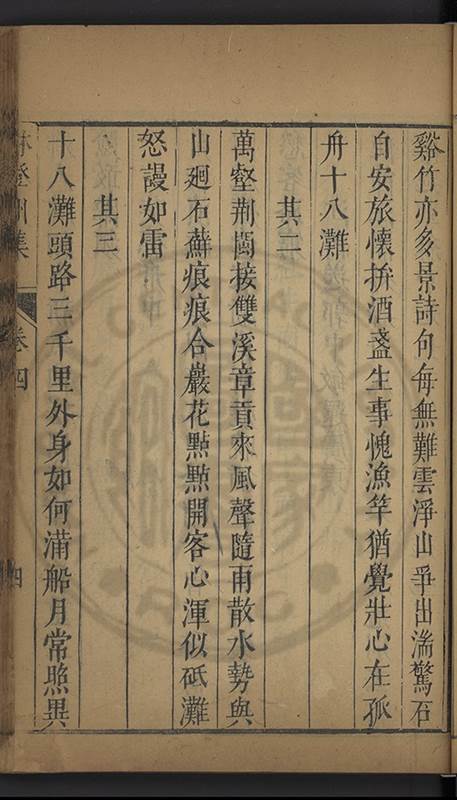 谿竹亦多景詩句每無難雲淨山爭出湍驚石
自安旅懷拚酒盞生事愧漁竿猶覺壯心在孤
舟十八灘
其二
萬壑荆關接雙溪章貢來風聲隨雨散水勢與
山廻石蘚痕痕合巖花點點開客心渾似砥灘
怒謾如雷
其三
十八灘頭路三千里外身如何滿船月常照異
集
卷四
四